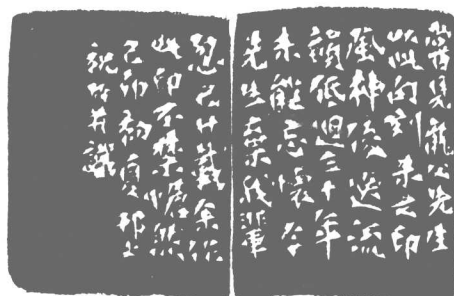 舊見龍公先生
以此句刻朱文印
風神俊逸流
韻低迴三十年
未能忘懷今
先生棄我輩
忽已廿載余作
此印不禁愴然
己卯初夏邗上
祝竹并識